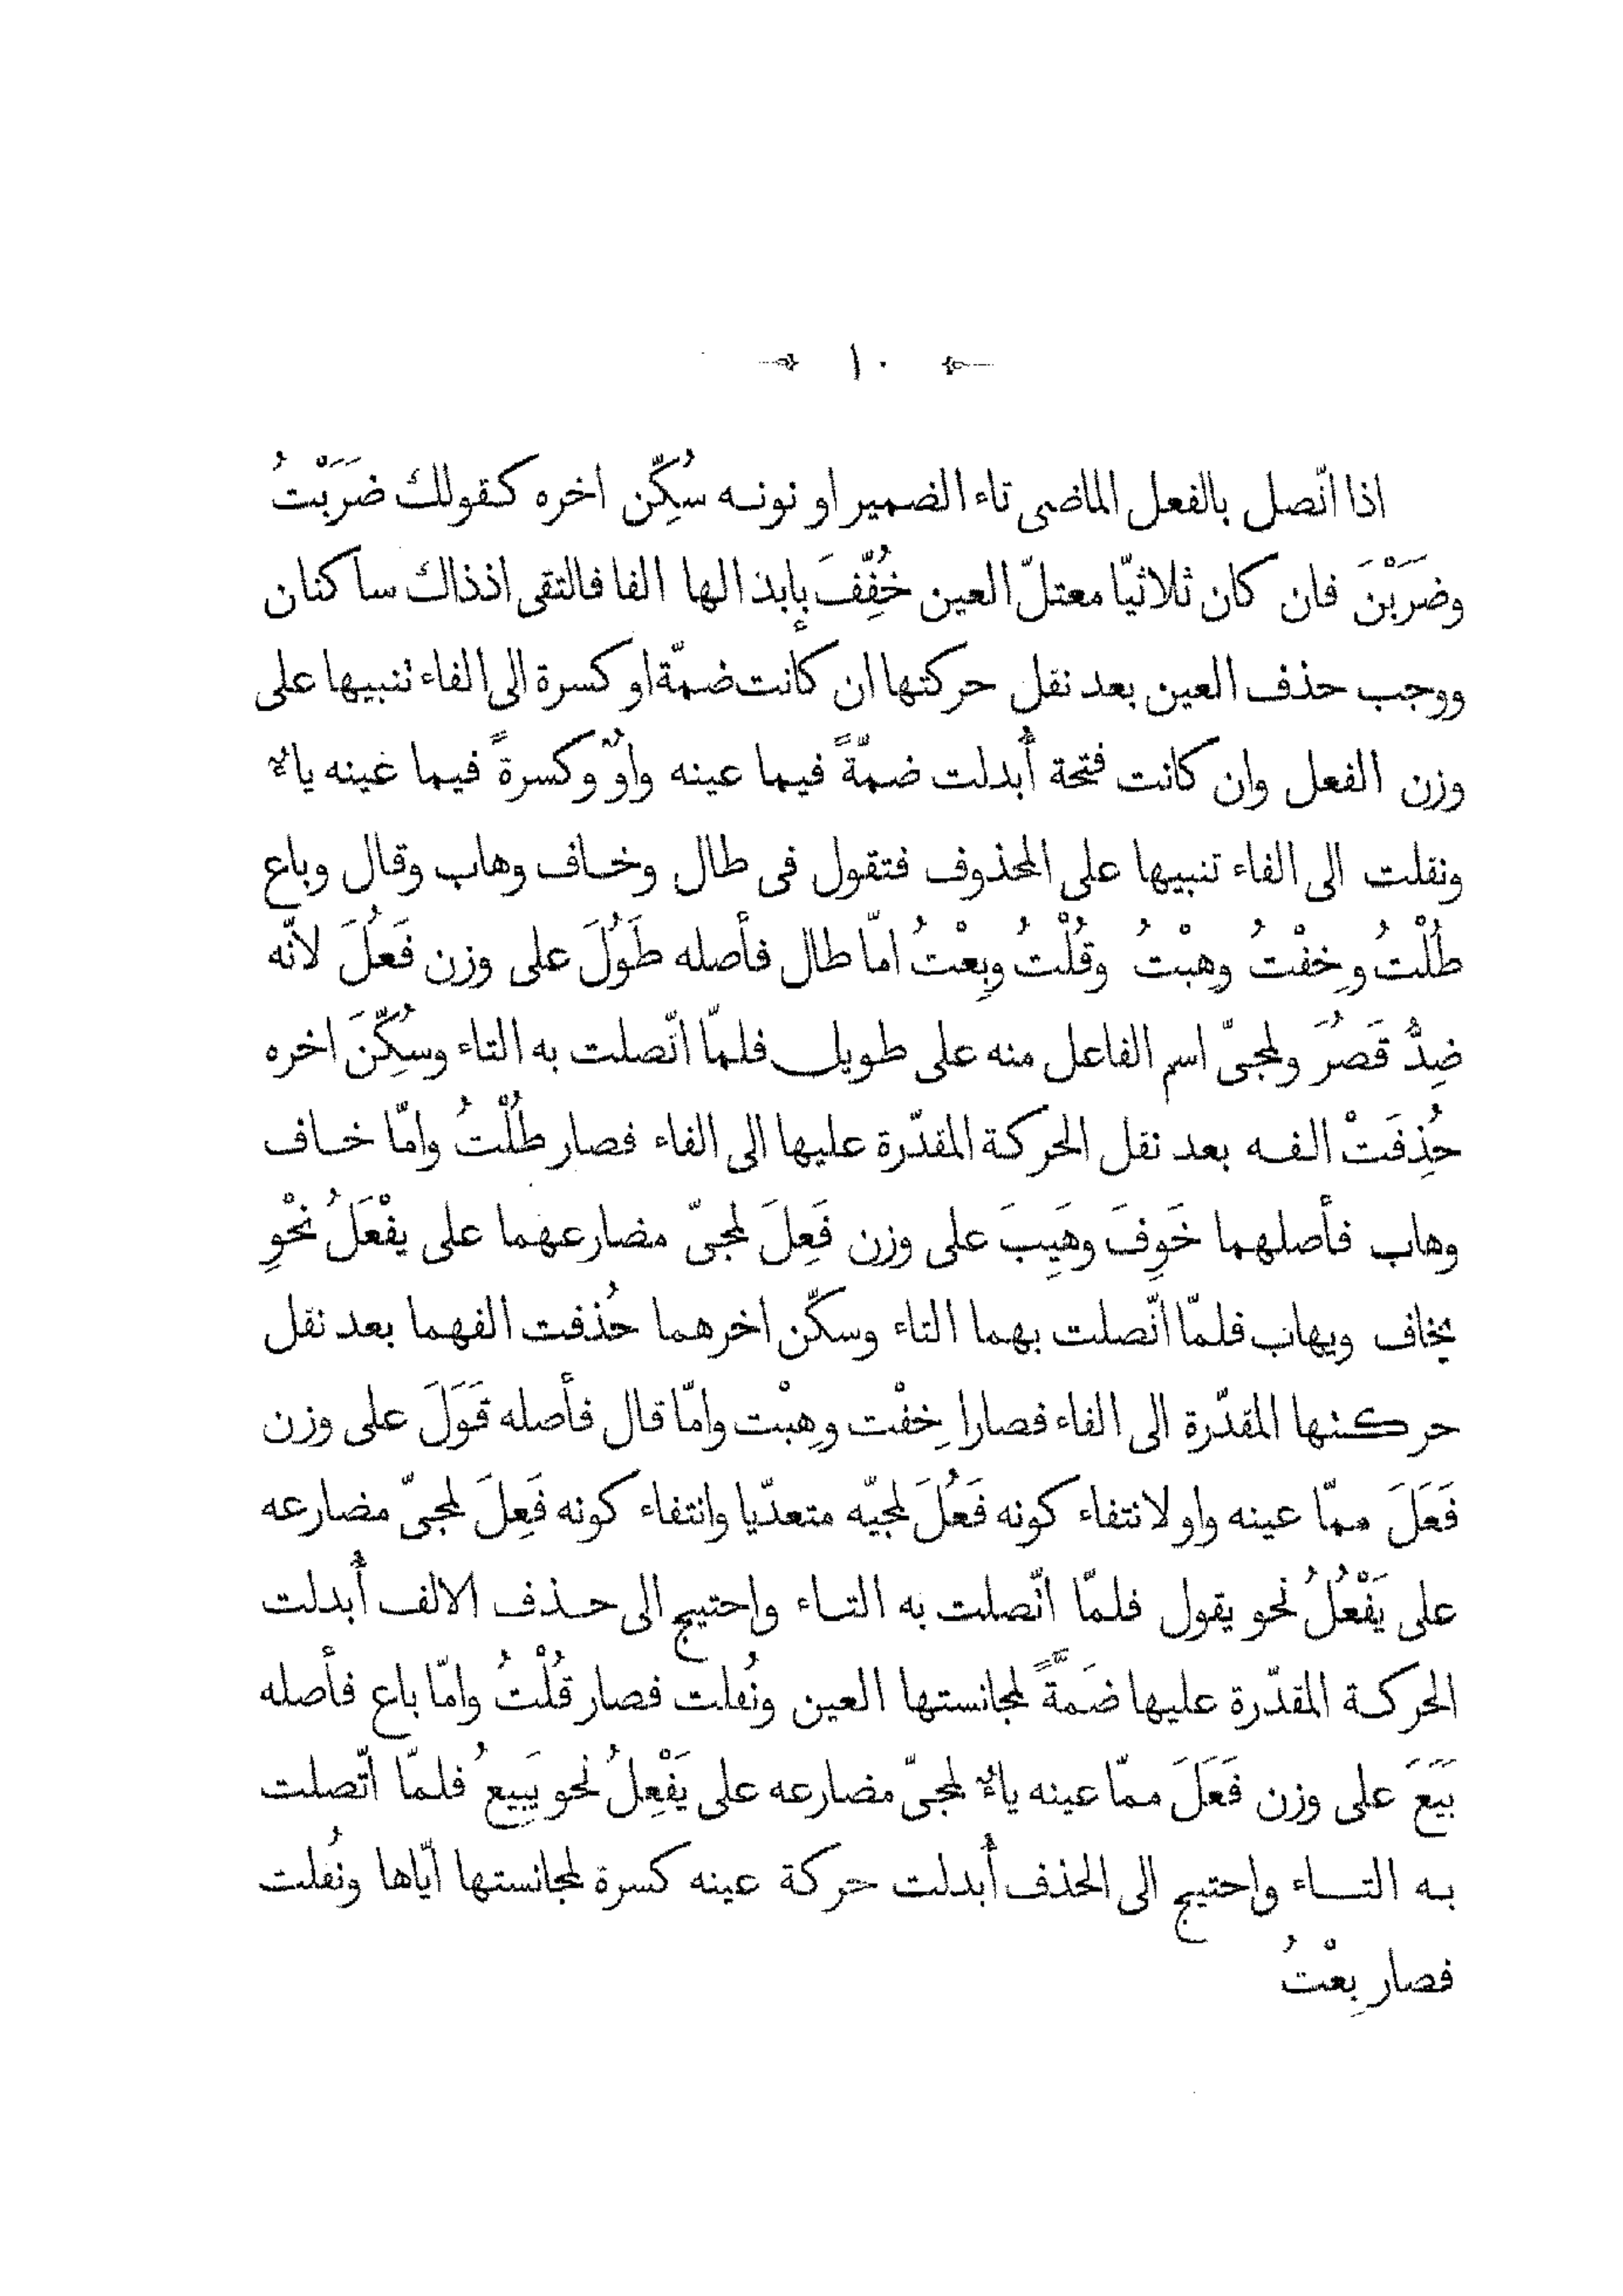 ١٠
اذا اتّصل بالفعل الماضى تاء الضمير او نونه سُكِّن اخره كقولك ضَرَبْتُ
وضَرَبْنَ فان كان ثلاثيّا معتلّ العين خُفِّفَ بإبدالها الفا فالتقى اذذاك ساكنان
ووجب حذف العين بعد نقل حركتها ان كانت ضمّة او كسرة الى الفاء تنبيها على
وزن الفعل وان كانت فتحة أُبدلت ضمّةً فيما عينه واوٌ وكسرةً فيما عينه ياءٌ
ونقلت الى الفاء تنبيها على المحذوف فتقول فى طال وخاف وهاب وقال وباع
طُلْتُ وخِفْتُ وهِبْتُ وقُلْتُ وبِعْتُ امّا طال فأصله طَوُلَ على وزن فَعُلَ لانّه
ضِدُّ قَصُرَ ولمجىّ اسم الفاعل منه على طويل فلمّا اتّصلت به التاء وسُكِّنَ اخره
حُذِفَتْ الفه بعد نقل الحركة المقدّرة عليها الى الفاء فصار طُلْتُ وامّا خاف
وهاب فأصلهما خَوِفَ وهَيِبَ على وزن فَعِلَ لمجىّ مضارعهما على يفْعَلُ نحْوِ
يخاف ويهاب فلمّا اتّصلت بهما التاء وسكّن اخرهما حُذفت الفهما بعد نقل
حركتها المقدّرة الى الفاء فصارا خِفْت وهِبْت وامّا قال فأصله قَوَلَ على وزن
فَعَلَ ممّا عينه واو لانتفاء كونه فَعُلَ لمجيّه متعدّيا وانتفاء كونه فَعِلَ لمجىّ مضارعه
على يَفْعُلُ نحو يقول فلمّا اتّصلت به التاء واحتيج الى حذف الالف أُبدلت
الحركة المقدّرة عليها ضَمّةً لمجانستها العين ونُقلت فصار قُلْتُ وامّا باع فأصله
بَيَعَ على وزن فَعَلَ ممّا عينه ياءٌ لمجىّ مضارعه على يَفْعِلُ نحو يَبِيعُ فلمّا اتّصلت
به التاء واحتيج الى الحذف أُبدلت حركة عينه كسرة لمجانستها ايّاها ونُقلت
فصار بِعْتُ